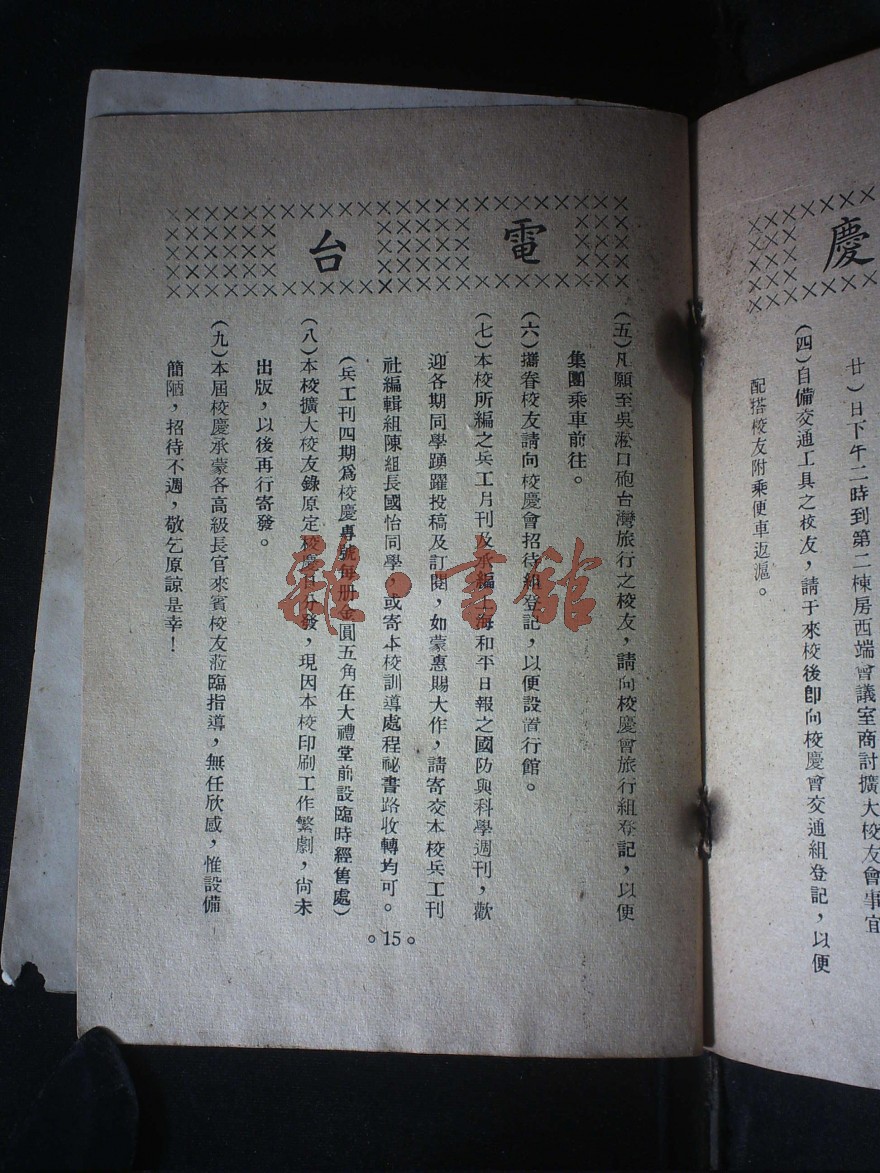 慶
廿）日下午二時到第二棟房西端會議室商討擴大校友會事宜
（四）自備交通工具之校友，請于來校後卽向校慶會交通組登記，以便
配搭校友附乘便車返滬。
電台
（五）凡願至吳淞口砲台灣旅行之校友，請向校慶會旅行組登記，以便
集團乘車前往。
（六）攜眷校友請向校慶會招待組登記，以便設置行館。
（七）本校所編之兵工月刊及承編上海和平日報之國防與科學週刊，歡
迎各期同學踴躍投稿及訂閱，如蒙惠賜大作，請寄交本校兵工刊
社編輯組陳組長國怡同學，或寄本校訓導處程祕書路收轉均可。
（兵工刊四期爲校慶專號每册金圓五角在大禮堂前設臨時經售處）
（八）本校擴大校友錄原定校慶日分發，現因本校印刷工作繁劇，尙未
出版，以後再行寄發。
（九）本屆校慶承蒙各高級長官來賓校友蒞臨指導，無任欣感，惟設備
簡陋，招待不週，敬乞原諒是幸！
。15。
雜·書館